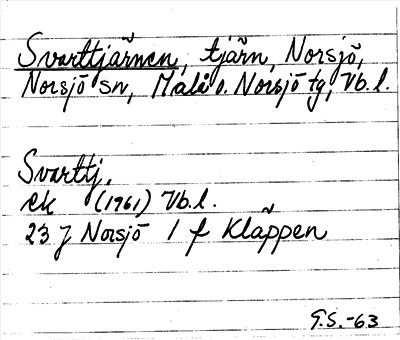 Svarttjärnen, tjärn, Norsjö,
Norsjö sn, Malå o. Norsjö tg, Vb.l.
Svarttj.
ek (1961) Vb.l.
23 J Norsjö 1 f Kläppen
G.S.-63